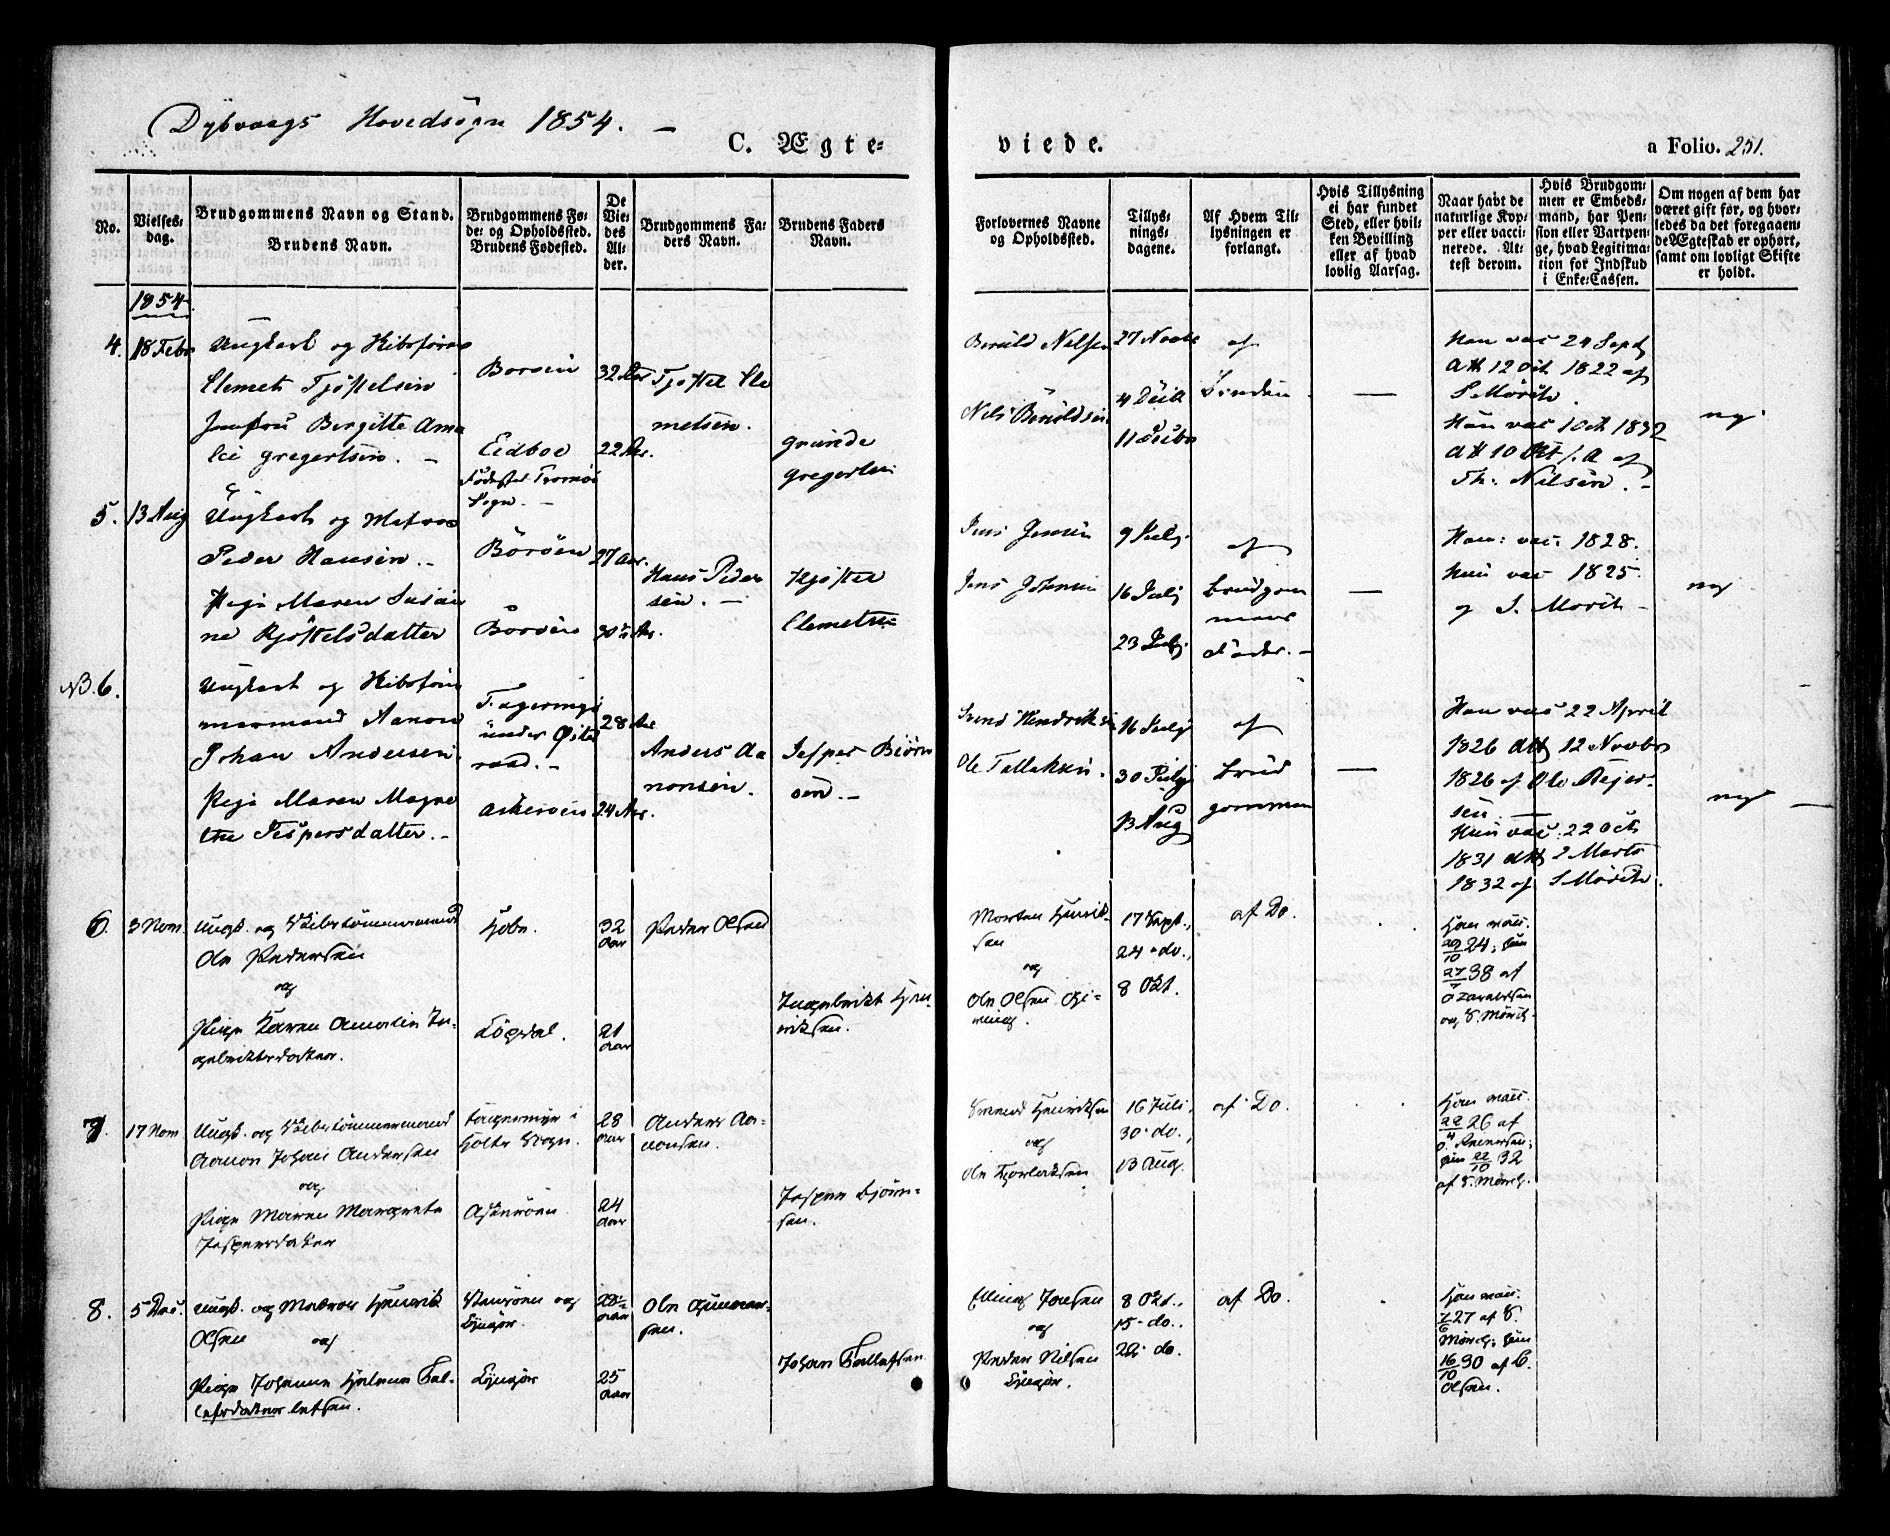 Dybvaags Hovedsogn 1854. –
C. Ægte-
viede.
a Folio. 251.
No.
Vielses-
dag.
Brudgommens Navn og Stand.
Brudens Navn.
Brudgommens Fø-
de- og Opholdssted.
Brudens Fødested.
De
Vie-
des
Al-
der.
Brudgommens Fa-
ders Navn.
Brudens Faders
Navn.
Forlovernes Navne
og Opholdssted.
Tillys-
nings-
dagene.
Af Hvem Til-
lysningen er
forlangt.
Hvis Tillysning
ei har fundet
Sted, eller hvil-
ken Bevilling
eller af hvad
lovlig Aarsag.
Naar havt de
naturlige Kop-
per eller vacci-
nerede. At-
test derom.
Hvis Brudgom-
men er Embeds-
mand, har Pen-
sion eller Vartpen-
ge, hvad Legitima-
tion for Indskud
i Enke-Cassen.
Om nogen af dem har
været gift før, og hvor-
ledes da det foregaaen-
de Ægteskab er ophørt,
samt om lovligt Skifte
er holdt.
1854
4.
18 Febr
Ungkarl og
Clemet Tjøstelsen
Jomfru Bergitte Ama
lie Gregertsen. –
Borøen
Eidboe
Sogn. –
32 Aar
22 Aar.
Tjøstel Cle
metsen.
Grunde
Gregertsen
Nils
4 Decb
11 Decbr
af
Bruden
—
Han vac 24 Sept
Att 12 Oct 1822 af
S Mörch.
Hun vac 1 Oct 1832
Att 10 Oct s. A af
Th: Nilsen. –
nej.
5.
13 Aug
Ungkarl og Matros
Peder Hansen. –
Pige Maren Susan
ne Kjøstelsdatter
Borøen
Borøen
27 Aar.
30 Aar.
Hans Peder
sen. –
Kjøstel
Clemetsen
Jens Jensen
Jens
9 July.
16 July
23 July.
af
Brudgom
mens
Fader. –
—
Han: vac. 1828.
Hun vac 1825.
af S. Mörch –
nej
NB. 6.
Ungkarl og
mermand Aanon
Johan Andersen
Pige Maren Magre
the Jespersdatter. –
under Øster
raad. –
Askerøen
28 Aar
24 Aar.
Anders Aa
nonsen.
Jesper Biørn
sen. –
Svend Hendriksen
Ole Tallaksen.
16 July
30 July
13 Aug
af
Brud
gommen
—
Han vac 22 April
1826 Att 12 Novbr
1826 af Ole
sen. —
Hun vac. 22 Oct
1831 Att 2 Marts
1832 af S Mörch.
nej –
6.
3 Nov.
Ungk. og Skibstömmermand
Ole Pedersen
og
Pige Karen Amalie In-
gebrektsdatter.
Lögdal.
32
Aar
21
Aar
Peder Olsen
Ingebrekt Hen-
riksen.
Morten Henrik-
sen
og
Ole Olsen
17 Sept.,
24 - do.,
8 Okt.
af Do.
Han vacc.
24; hun
38 af
og S. Mörch.
7.
17 Nov.
Ungk. og Skibstömmermand
Aanon Johan Andersen
og
Pige Maren Margrete
Jespersdatter
Fagermyr i
Holts Sogn.
Askerøen
28
Aar
24
Aar
Anders Aa-
nonsen.
Jesper Bjørn-
sen.
Svend Henriksen
og
16 Juli,
30 - do.,
13 Aug.
af Do.
Han vacc.
22/4 26 af
hun 22/10 32
af S. Mörch.
8.
5 Dec.
Ungk. og Matros Henrik
Olsen og
Pige Johanne Helene Tal-
lefsdatter lefsen.
og
Lyngør.
Lyngør
Aar
25
Aar
Ole Gunvar-
sen.
Johan Tallefsen
Elling Jensen
og
Peder Nilsen
Lyngør.
8 Okt.,
15 - do.,
22 - do.
af Do.
Han vacc.
7/6 27 af S.
Mörch; hun
16/10 30 af C.
Olsen.